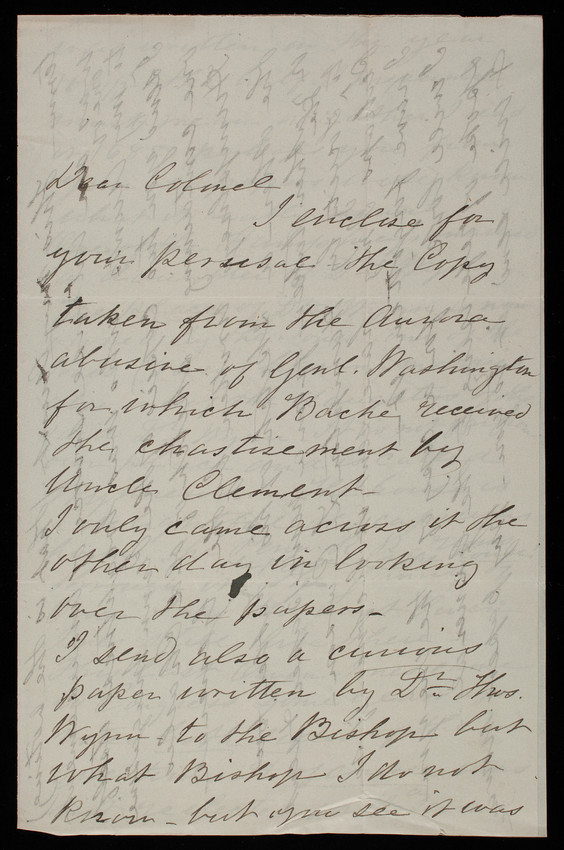 Dear Colonel
I enclose for
your perusal the Copy
taken from the Aurora
abusive of Genl. Washington
for which Bache received
the chastisement by
Uncle Clement -
I only came across it the
other day in looking
over the papers -
I send also a curious
paper written by Dr. Thos.
Wynn - to the Bishop but
what Bishop I do not
know - but you see it was